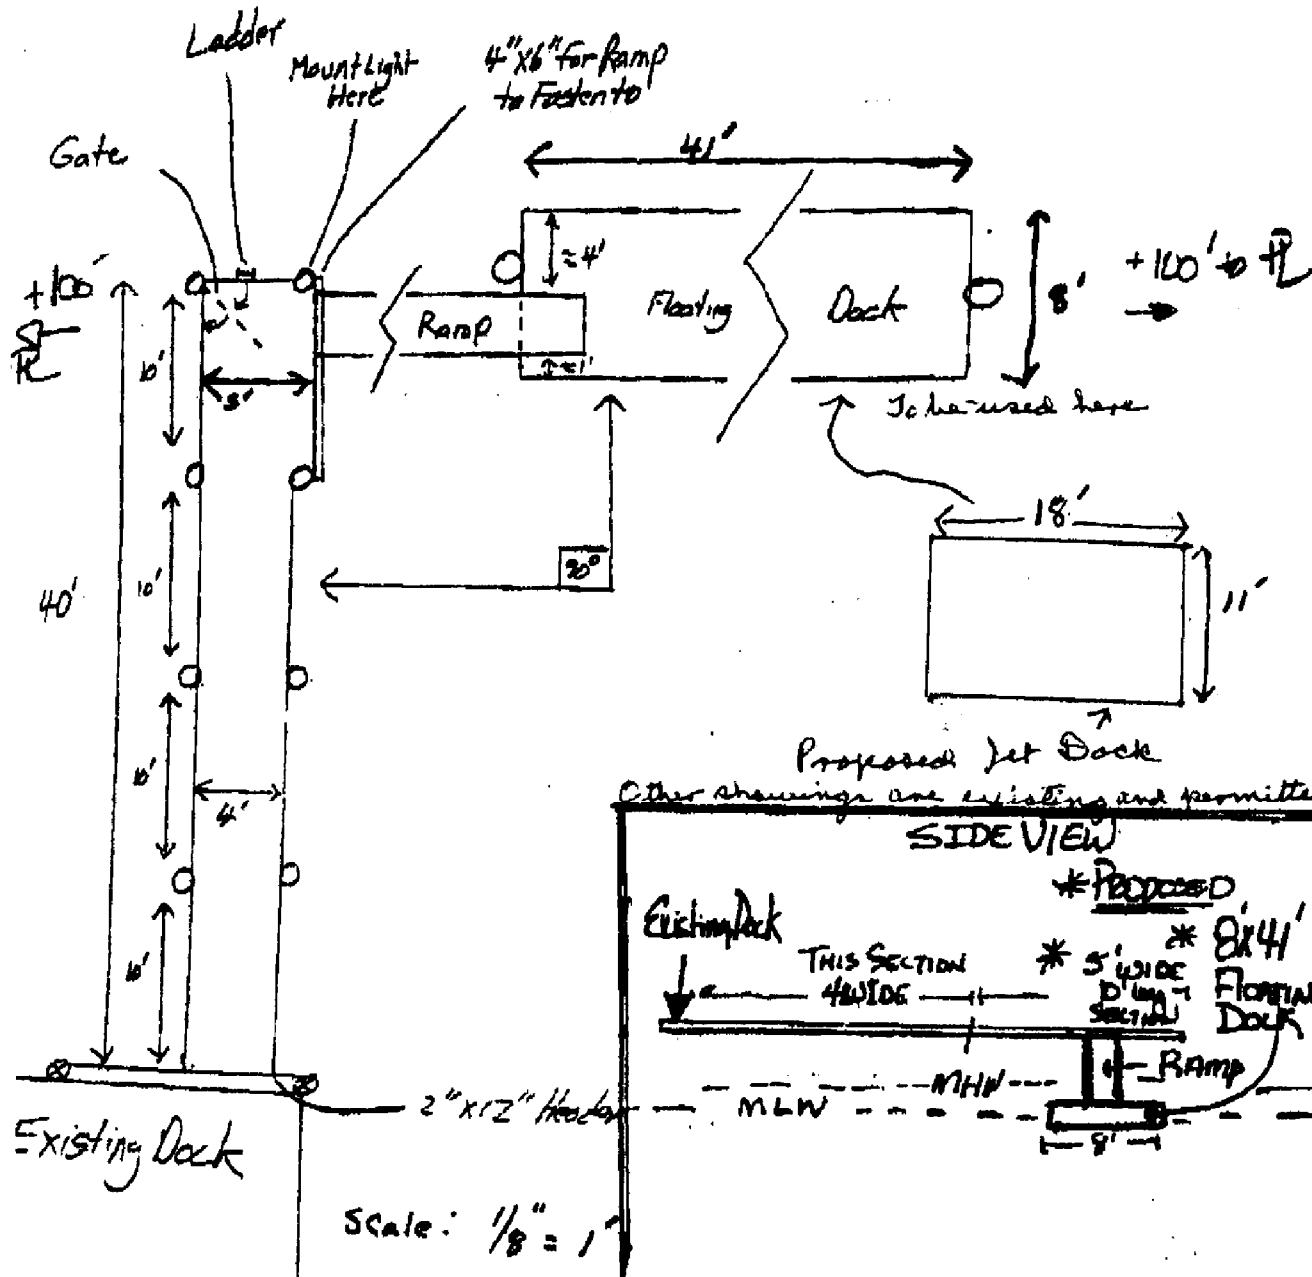 Ladder
Mount Light
Here
4"x6" for Ramp
to Fasten to
Gate
41'
≈4'
+100'
PL
+100' to PL
8'
Floating Dock
Ramp
≈1'
10'
5'
To be used here
18'
10'
90°
40'
11'
Proposed Jet Dock
Other showings are existing and permitte
10'
4'
SIDE VIEW
*PROPOSED
Existing Dock
THIS SECTION
4'WIDE
* 5' WIDE
10' long
SECTION
* 8'x41'
FLOATIN
DOCK
10'
RAMP
MHW
MLW
2"x12" Header
8'
Existing Dock
Scale: 1/8" = 1'